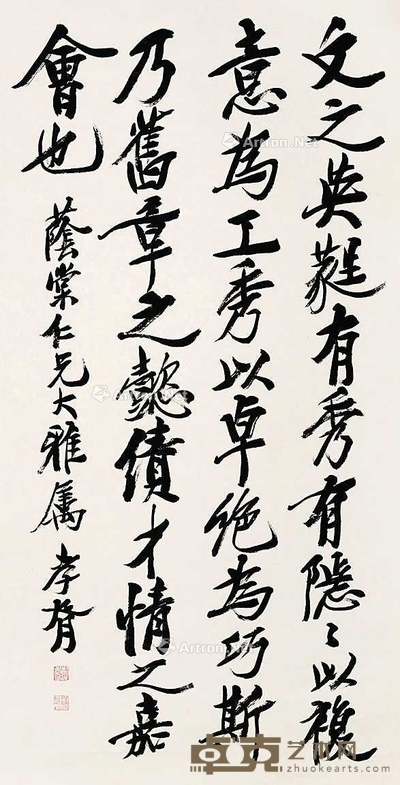 文之英蕤有秀有隱〻以複
意為工秀以卓絕為巧斯
乃舊章之懿績才情之嘉
會也
蔭棠仁兄大雅屬 孝胥
Artron.Net
卓克艺术网
zhuokearts.com